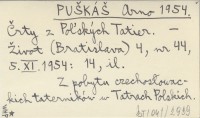 PUŠKÁŠ Arno 1954.
Črty z Poľských Tatier. -
Život (Bratislava) 4, nr 44,
5. XI. 1954: 14, il.
Z pobytu czechosłowac-
kich taterników w Tatrach Polskich